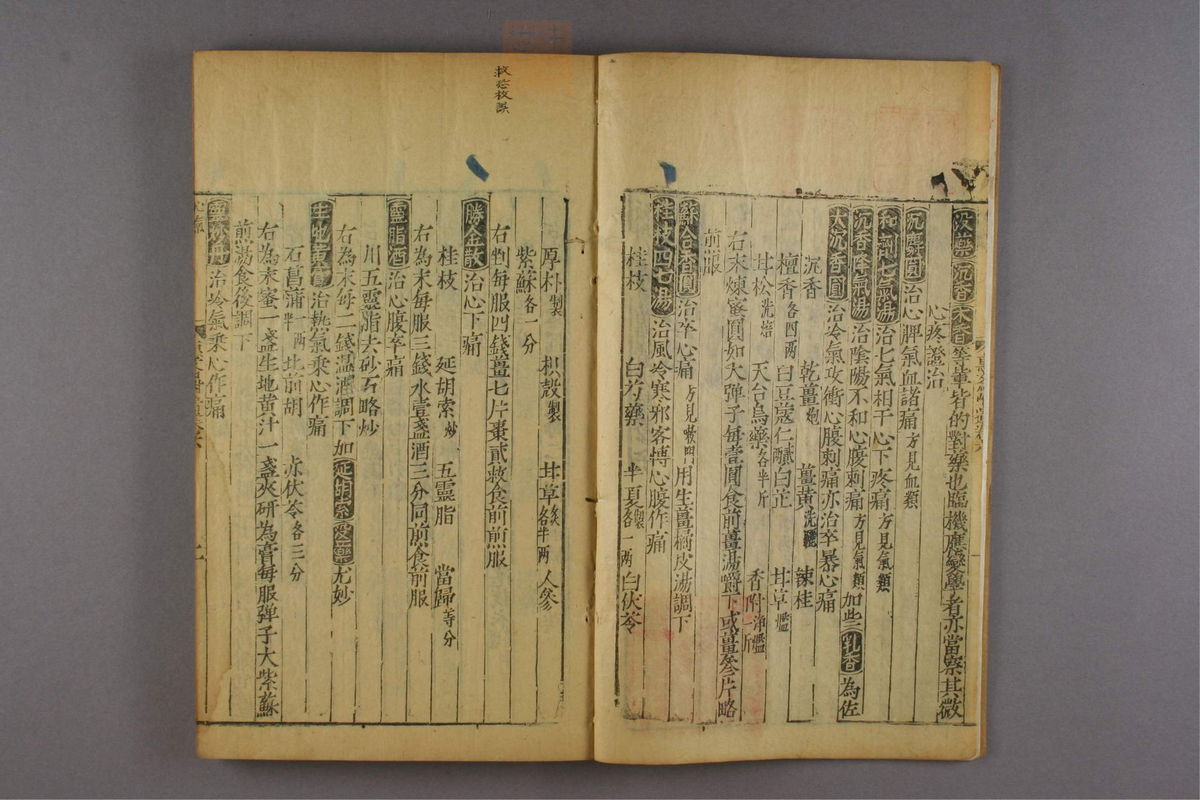 没藥沉香木香等輩皆的對藥也臨機應變學者亦當察其微
心疼證治
沉麝圓治心脾氣血諸痛方見血類
和劑七氣湯治七氣相干心下疼痛方見氣類
沉香降氣湯治陰陽不和心腹刺痛方見氣類加些乳香為佐
大沉香圓治冷氣攻衝心腹刺痛亦治卒暴心痛
沉香 乾薑炮 薑黃 辣桂
檀香各四兩 白豆蔻仁 白芷 甘草
甘松洗焙 天台烏藥各半斤 香附一斤
右末煉蜜圓如大彈子每壹圓食前薑湯嚼下或薑叁片略
煎服
蘇合香圓治卒心痛方見喉門用生薑橘皮湯調下
桂枝四七湯治風冷寒邪客搏心腹作痛
桂枝 白芍藥 半夏製各一兩 白伏苓
厚朴製 枳殼製 甘草炙各半兩 人參
紫蘇各一分
右剉每服四錢薑七片棗貳枚食前煎服
勝金散治心下痛
桂枝 延胡索炒 五靈脂 當歸等分
右為末每服三錢水壹盞酒三分同煎食前服
靈脂酒治心腹卒痛
川五靈脂去砂石略炒
右為末每二錢溫酒調下加延胡索没藥尤妙
生地黃膏治熱氣乘心作痛
石菖蒲一兩半 北前胡 赤伏苓各三分
右為末蜜一盞生地黃汁一盞夾研為膏每服彈子大紫蘇
煎湯食後調下
治冷氣乘心作痛